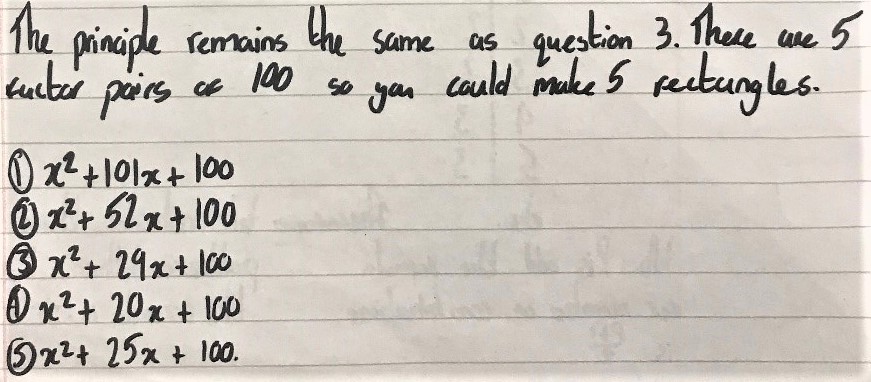 The principle remains the same as question 3. There are 5
factor pairs of 100 so you could make 5 rectangles.
① x² + 101x + 100
② x² + 52x + 100
③ x² + 29x + 100
④ x² + 20x + 100
⑤ x² + 25x + 100.